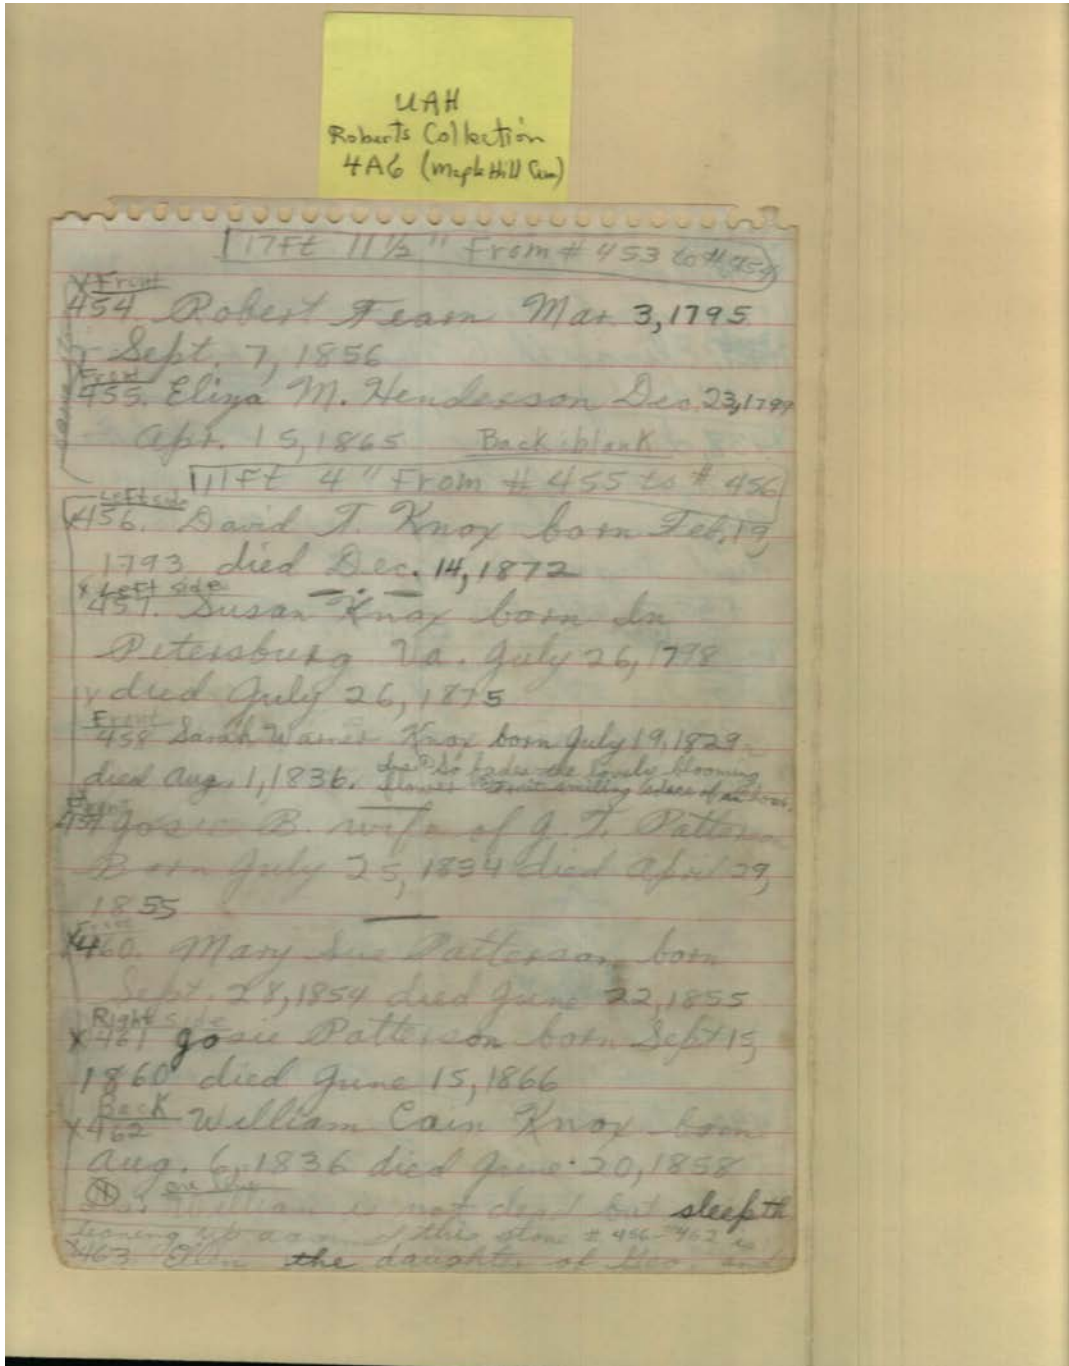 UAH
Roberts Collection
4A6 (Maple Hill Cem)
17Ft 11½" From # 453 to # 454
Front
454 Robert Fearn Mar. 3, 1795
Sept. 7, 1856
Front
455. Eliza M. Henderson Dec. 23, 1799
Apr. 15, 1865 Back blank
11Ft 4" From # 455 to # 456
Left side
456. David T. Knox born Feb. 19,
1793 died Dec. 14, 1872
x Left side
457. Susan Knox born In
Petersburg Va. July 26, 1798
died July 26, 1875
Front
458 Sarah Knox born July 19, 1829
died Aug. 1, 1836. So fades the lovely blooming
smiling solace of an hour.
Front
459 Josie B. wife of J. T. Patterson
Born July 25, 1834 died April 29,
1855
x460. Mary Sue Patterson born
Sept. 28, 1854 died June 22, 1855
Right side
x461 Josie Patterson born Sept 15,
1860 died June 15, 1866
Back
x462 William Cain Knox born
Aug. 6, 1836 died June 20, 1858
one line
William is not dead but sleepth
leaning up this stone # 456-462 is
463. the daughter of Geo. and